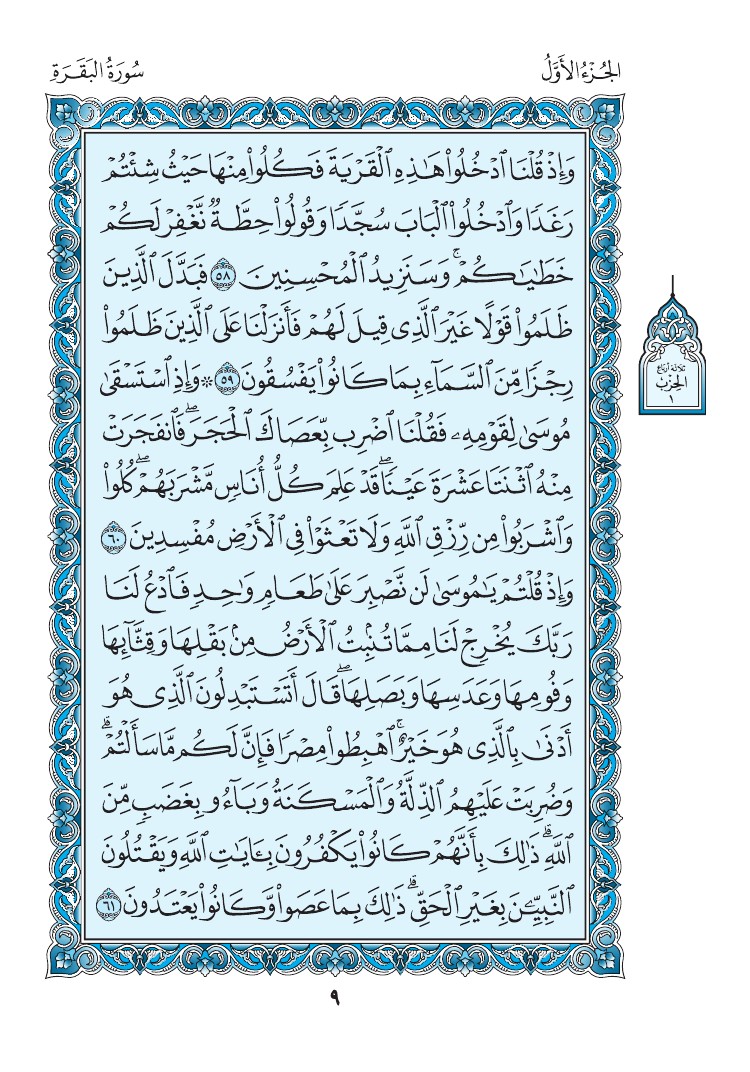 الجُزْءُ الأَوَّلُ
سُورَةُ البَقَرَةِ
وَإِذۡ قُلۡنَا ٱدۡخُلُواْ هَٰذِهِ ٱلۡقَرۡيَةَ فَكُلُواْ مِنۡهَا حَيۡثُ شِئۡتُمۡ
رَغَدٗا وَٱدۡخُلُواْ ٱلۡبَابَ سُجَّدٗا وَقُولُواْ حِطَّةٞ نَّغۡفِرۡ لَكُمۡ
خَطَٰيَٰكُمۡۚ وَسَنَزِيدُ ٱلۡمُحۡسِنِينَ ٥٨ فَبَدَّلَ ٱلَّذِينَ
ظَلَمُواْ قَوۡلًا غَيۡرَ ٱلَّذِي قِيلَ لَهُمۡ فَأَنزَلۡنَا عَلَى ٱلَّذِينَ ظَلَمُواْ
رِجۡزٗا مِّنَ ٱلسَّمَآءِ بِمَا كَانُواْ يَفۡسُقُونَ ٥٩ ۞ وَإِذِ ٱسۡتَسۡقَىٰ
مُوسَىٰ لِقَوۡمِهِۦ فَقُلۡنَا ٱضۡرِب بِّعَصَاكَ ٱلۡحَجَرَۖ فَٱنفَجَرَتۡ
مِنۡهُ ٱثۡنَتَا عَشۡرَةَ عَيۡنٗاۖ قَدۡ عَلِمَ كُلُّ أُنَاسٖ مَّشۡرَبَهُمۡۖ كُلُواْ
وَٱشۡرَبُواْ مِن رِّزۡقِ ٱللَّهِ وَلَا تَعۡثَوۡاْ فِي ٱلۡأَرۡضِ مُفۡسِدِينَ ٦٠
وَإِذۡ قُلۡتُمۡ يَٰمُوسَىٰ لَن نَّصۡبِرَ عَلَىٰ طَعَامٖ وَٰحِدٖ فَٱدۡعُ لَنَا
رَبَّكَ يُخۡرِجۡ لَنَا مِمَّا تُنۢبِتُ ٱلۡأَرۡضُ مِنۢ بَقۡلِهَا وَقِثَّآئِهَا
وَفُومِهَا وَعَدَسِهَا وَبَصَلِهَاۖ قَالَ أَتَسۡتَبۡدِلُونَ ٱلَّذِي هُوَ
أَدۡنَىٰ بِٱلَّذِي هُوَ خَيۡرٌۚ ٱهۡبِطُواْ مِصۡرٗا فَإِنَّ لَكُم مَّا سَأَلۡتُمۡۗ
وَضُرِبَتۡ عَلَيۡهِمُ ٱلذِّلَّةُ وَٱلۡمَسۡكَنَةُ وَبَآءُو بِغَضَبٖ مِّنَ
ٱللَّهِۗ ذَٰلِكَ بِأَنَّهُمۡ كَانُواْ يَكۡفُرُونَ بِـَٔايَٰتِ ٱللَّهِ وَيَقۡتُلُونَ
ٱلنَّبِيِّـۧنَ بِغَيۡرِ ٱلۡحَقِّۗ ذَٰلِكَ بِمَا عَصَواْ وَّكَانُواْ يَعۡتَدُونَ ٦١
ثلاثة أرباع
الحزب
١
٩